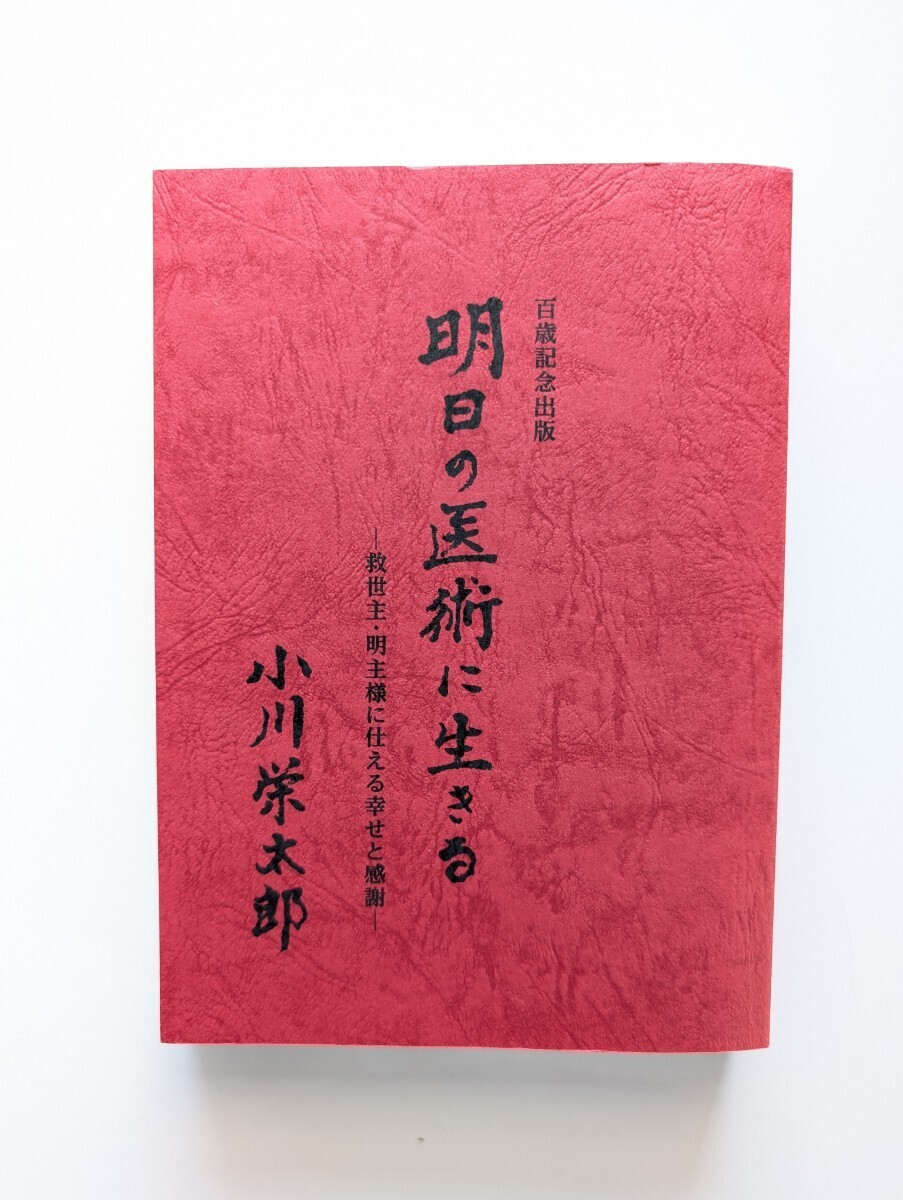 百歳記念出版
明日の医術に生きる
―救世主・明主様に仕える幸せと感謝―
小川栄太郎